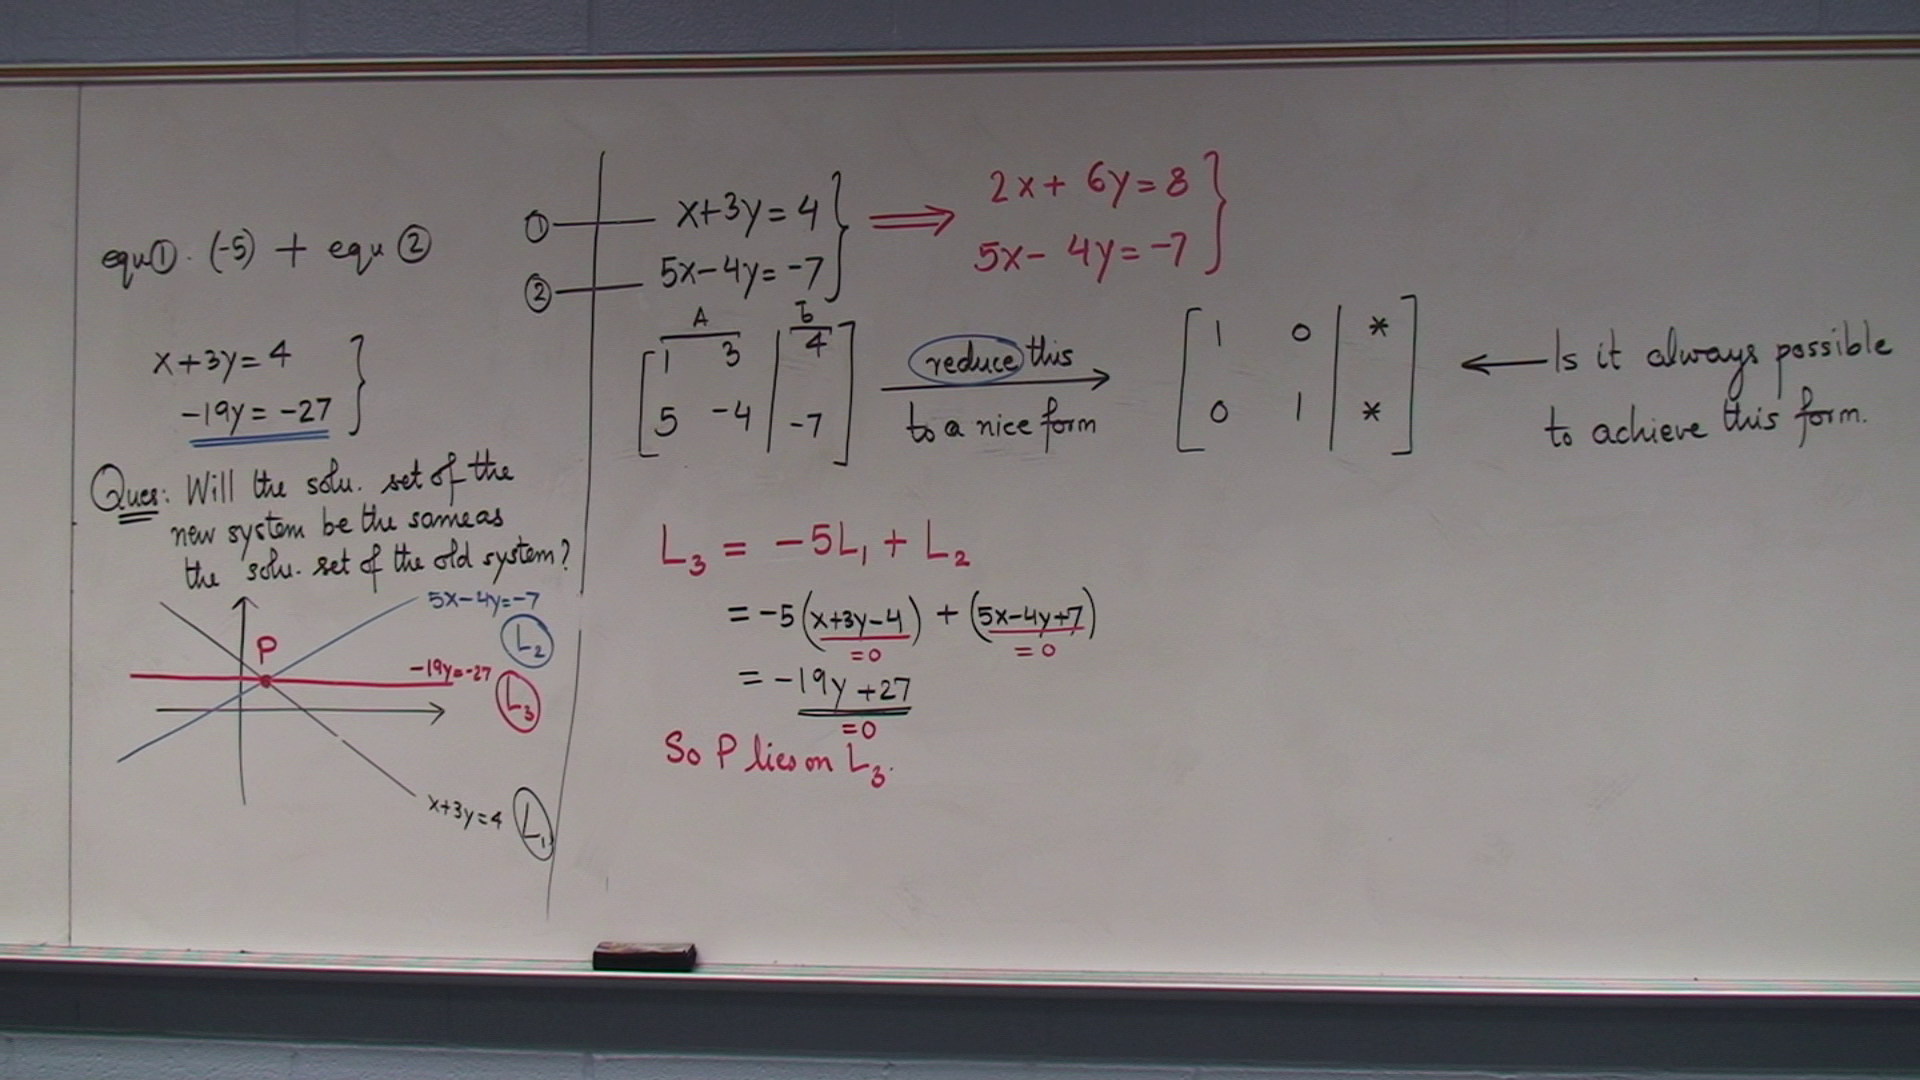 equ ①. (-5) + equ ②
x+3y=4
-19y = -27
Ques: Will the solu. set of the
new system be the same as
the solu. set of the old system?
5x-4y=-7
L₂
P
-19y=-27
L₃
x+3y=4
L₁
① x+3y=4 ⟹ 2x+6y=8
② 5x-4y=-7 5x-4y=-7
A b
1 3 | 4
5 -4 | -7
reduce this
to a nice form
1 0 | *
0 1 | *
← Is it always possible
to achieve this form.
L₃ = -5L₁ + L₂
= -5(x+3y-4) + (5x-4y+7)
=0 =0
= -19y +27
=0
So P lies on L₃.